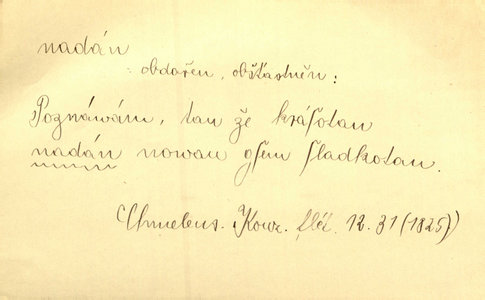 nadán
: obdařen, obšťastněn :
Poznáwám, tau že kráſotau
nadán nowau gſem ſladkotau.
Chmelens. Kwěz. 12. 31 (1825)